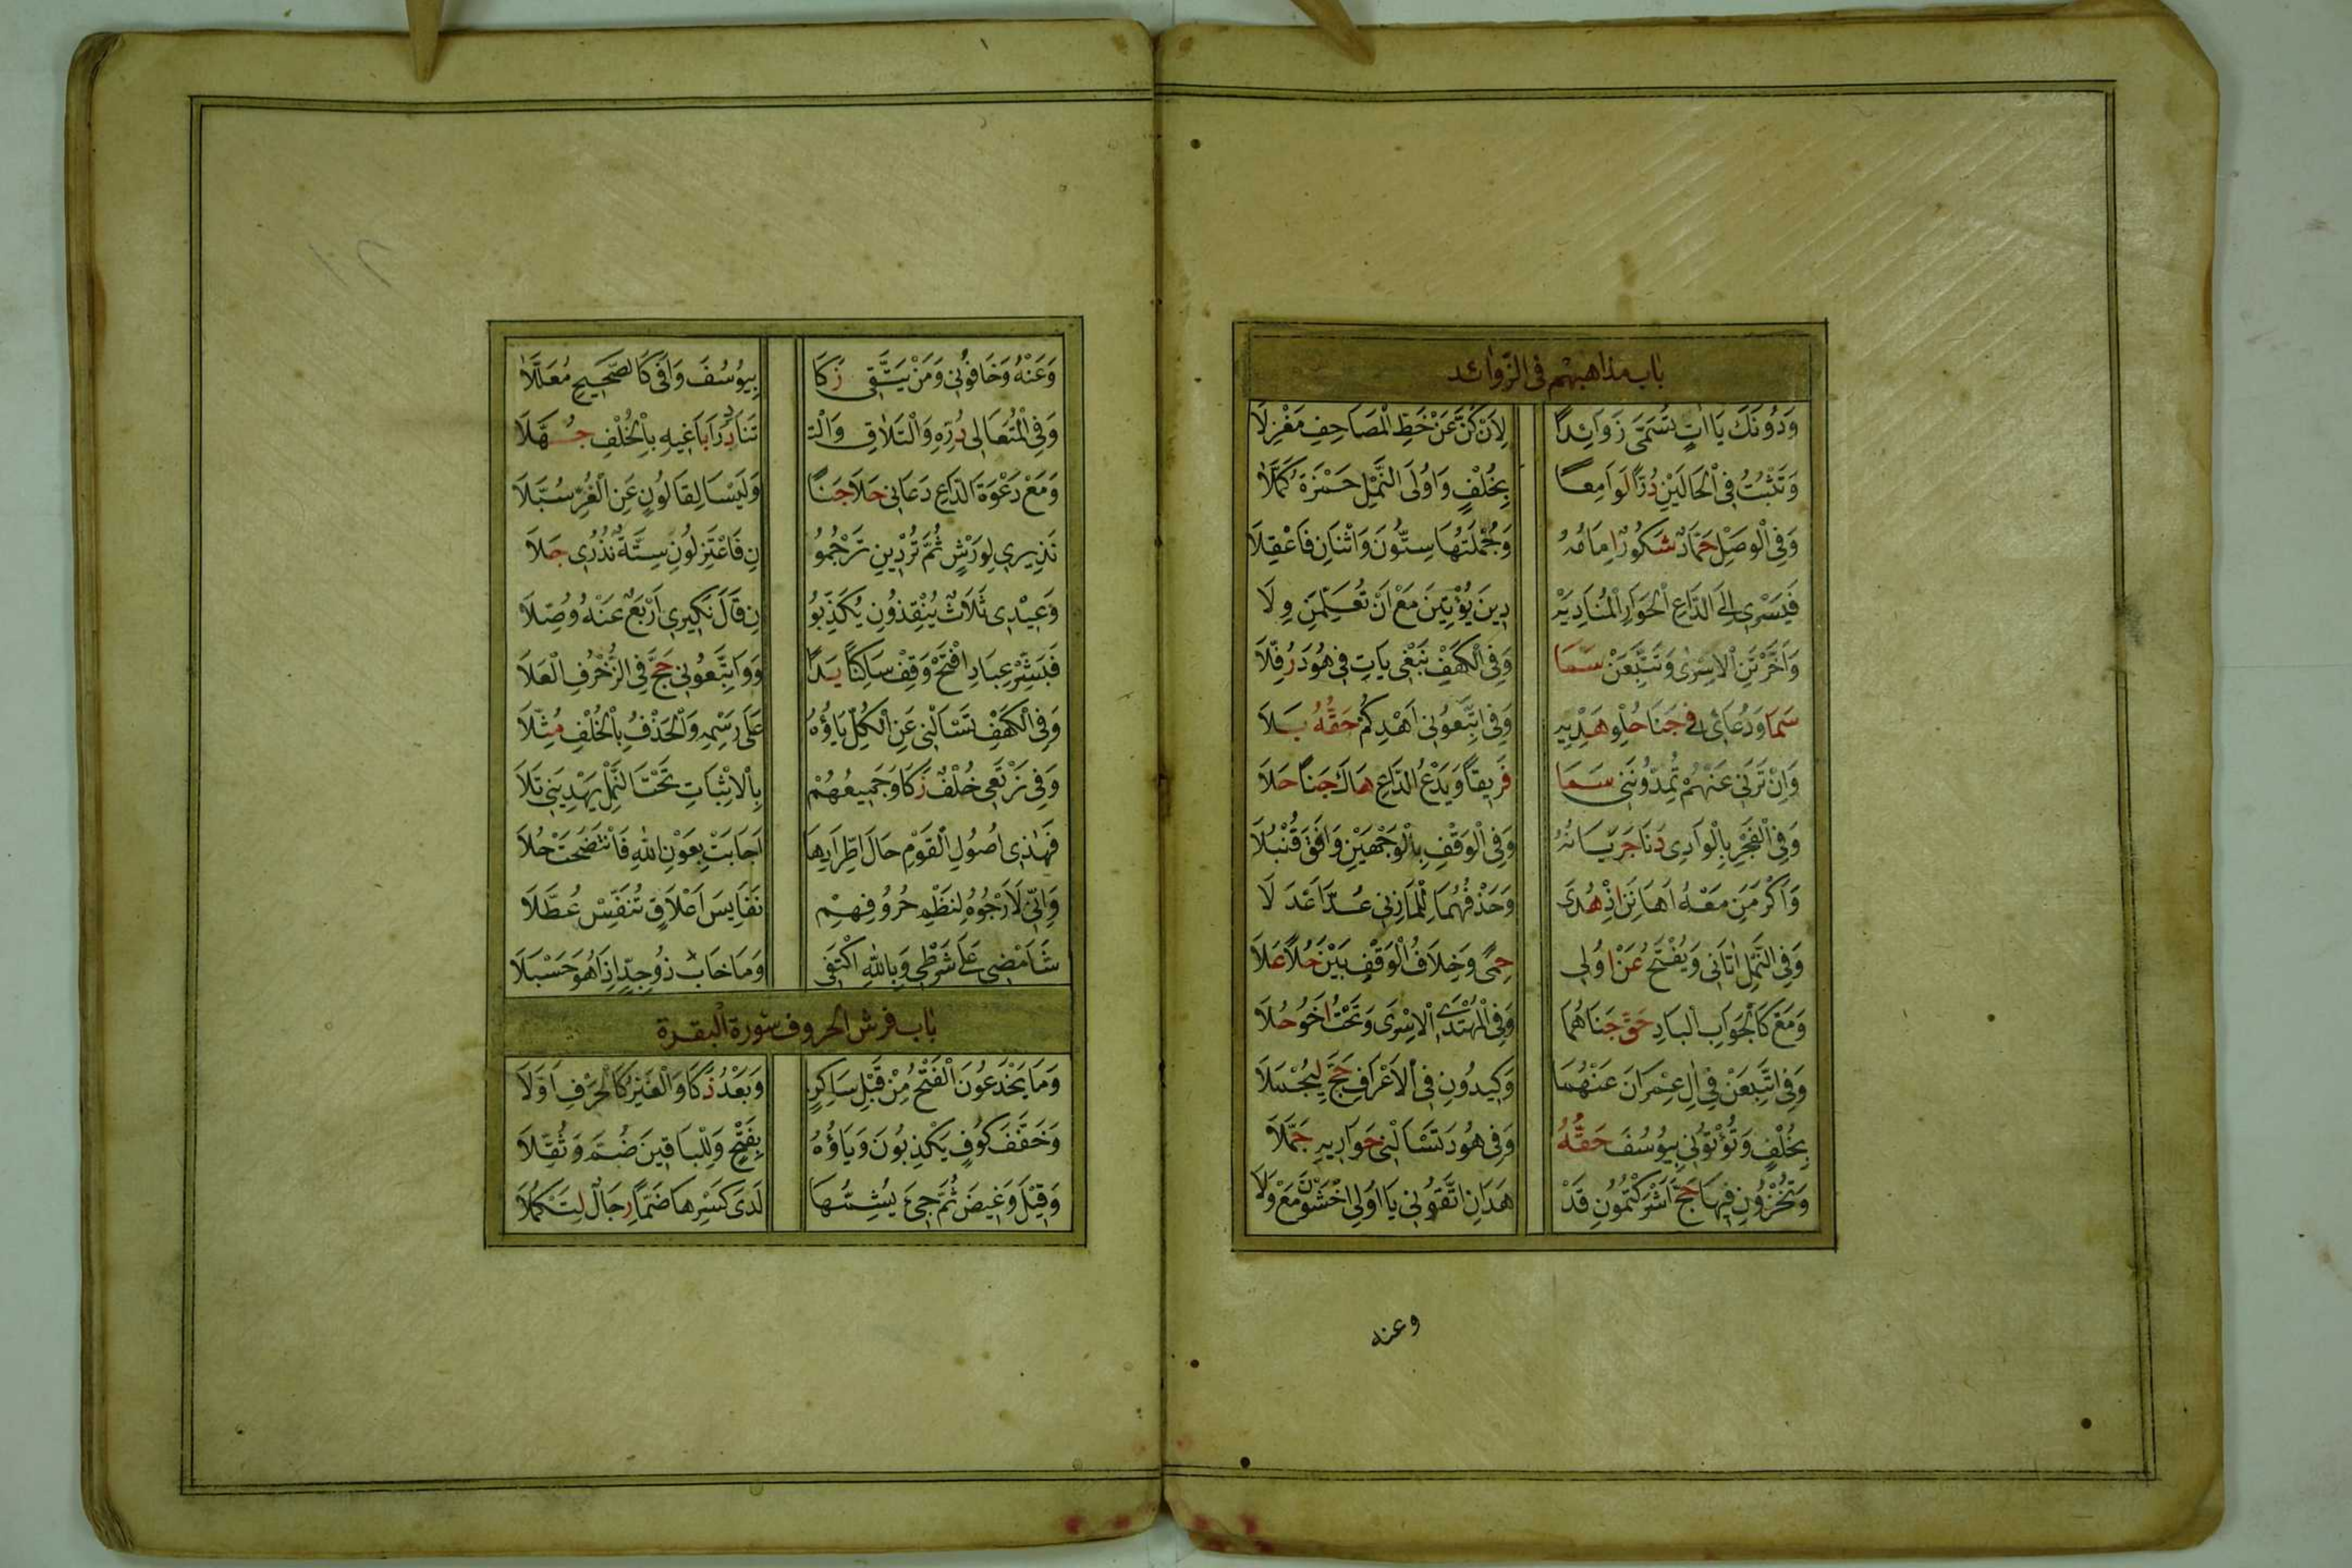 باب مذاهبهم فى الزوائد
وَدُونَكَ يَا اٰتٍ تُسَمَّى زَوَائِدًا لِاَنْ كُنَّ عَنْ خَطِّ الْمَصَاحِفِ مَعْزِلَا
وَتَثْبُتُ فِى الْحَالَيْنِ دُرًّا لَوَامِعًا بِخُلْفٍ وَاُولَى النَّمْلِ حَمْزَةُ كَمَّلَا
وَفِى الْوَصْلِ حَمَّادٌ شَكُورٌ اِمَامُهُ وَجُمْلَتُهَا سِتُّونَ وَاثْنَانِ فَاعْقِلَا
فَيَسْرِى اِلَى الدَّاعِ الْجَوَارِ الْمُنَادِ يَهْ دِيَنْ يُؤْتِيَنْ مَعْ اَنْ تُعَلِّمَنِ وِلَا
وَاَخَّرْتَنِ الْاِسْرٰى وَتَتَّبِعَنْ سَمَا وَفِى الْكَهْفِ نَبْغِى يَاتِ فِى هُودَ رُفِّلَا
سَمَا وَدُعَائِى فِى جَنَا حُلْوِ هَدْيِهِ وَفِى اتَّبِعُونِى اَهْدِكُمْ حَقُّهُ بَلَا
وَاِنْ تَرَنِى عَنْهُمْ تُمِدُّونَنِى سَمَا فَرِيقًا وَيَدْعُ الدَّاعِ هَاكَ جَنًا حَلَا
وَفِى الْفَجْرِ بِالْوَادِى دَنَا جَرَيَانُهُ وَفِى الْوَقْفِ بِالْوَجْهَيْنِ وَافَقَ قُنْبُلَا
وَاَكْرَمَنِ مَعْهُ اَهَانَنِ اِذْ هُدَى وَحَذْفُهُمَا لِلْمَازِنِى عُدَّ اَعْدَلَا
وَفِى النَّمْلِ اٰتَانِى وَيُفْتَحُ عَنْ اُولِى حِمًى وَخِلَافُ الْوَقْفِ بَيْنَ حُلًا عَلَا
وَمَعْ كَالْجَوَابِ الْبَادِ حَقَّ جَنَاهُمَا وَفِى الْمُهْتَدِى الْاِسْرَى وَتَحْتُ اَخُو حُلَا
وَفِى اتَّبَعَنْ فِى اٰلِ عِمْرَانَ عَنْهُمَا وَكِيدُونِ فِى الْاَعْرَافِ حَجَّ لِيُحْمَلَا
بِخُلْفٍ وَتُؤْتُونِى بِيُوسُفَ حَقُّهُ وَفِى هُودَ تَسْاَلْنِى حَوَارِيهِ جَمَّلَا
وَتُخْزُونِ فِيهَا حَجَّ اَشْرَكْتُمُونِ قَدْ هَدَانِ اتَّقُونِى يَا اُولِى اخْشَوْنِ مَعْ وَلَا
وعنه
وَعَنْهُ وَخَافُونِى وَمَنْ يَتَّقِى زَكَا بِيُوسُفَ وَافَى كَالصَّحِيحِ مُعَلَّلَا
وَفِى الْمُتَعَالِى دُرُّهُ وَالتَّلَاقِ وَالتْ تَنَادِ دَرَا بَاغِيهِ بِالْخُلْفِ جُهَّلَا
وَمَعْ دَعْوَةَ الدَّاعِ دَعَانِى حَلَا جَنًا وَلَيْسَا لِقَالُونٍ عَنِ الْغُرِّ سُبَّلَا
نَذِيرِى لِوَرْشٍ ثُمَّ تُرْدِينِ تَرْجُمُو نِ فَاعْتَزِلُونِ سِتَّةٌ نُذُرِى جَلَا
وَعِيدِى ثَلَاثٌ يُنْقِذُونِ يُكَذِّبُو نِ قَالَ نَكِيرِى اَرْبَعٌ عَنْهُ وُصِّلَا
فَبَشِّرْ عِبَادِ افْتَحْ وَقِفْ سَاكِنًا يَدًا وَوَاتَّبِعُونِى حَجَّ فِى الزُّخْرُفِ الْعَلَا
وَفِى الْكَهْفِ تَسْاَلْنِى عَنِ الْكُلِّ يَاؤُهُ عَلَى رَسْمِهِ وَالْحَذْفُ بِالْخُلْفِ مُثِّلَا
وَفِى نَرْتَعِى خُلْفٌ زَكَا وَجَمِيعُهُمْ بِالْاِثْبَاتِ تَحْتَ النَّمْلِ يَهْدِيَنِى تَلَا
فَهٰذِى اُصُولُ الْقَوْمِ حَالَ اطِّرَادِهَا اَجَابَتْ بِعَوْنِ اللّٰهِ فَانْتَضَحَتْ حُلَا
وَاِنِّى لَاَرْجُوهُ لِنَظْمِ حُرُوفِهِمْ نَفَايِسَ اَعْلَاقٍ تُنَفِّسْ عُطَّلَا
سَاَمْضِى عَلَى شَرْطِى وَبِاللّٰهِ اَكْتَفِى وَمَا خَابَ ذُوجِدٍّ اِذَا هُوَ حَسْبَلَا
باب فرش الحروف سورة البقرة
وَمَا يَخْدَعُونَ الْفَتْحُ مِنْ قَبْلِ سَاكِنٍ وَبَعْدُ ذَكَا وَالْغَيْرُ كَالْحَرْفِ اَوَّلَا
وَخَفَّفَ كُوفٍ يَكْذِبُونَ وَيَاؤُهُ بِفَتْحٍ وَلِلْبَاقِينَ ضُمَّ وَثُقِّلَا
وَقِيلَ وَغِيضَ ثُمَّ جِىءَ يُشِمُّهَا لَدَى كَسْرِهَا ضَمًّا رِجَالٌ لِتَكْمُلَا